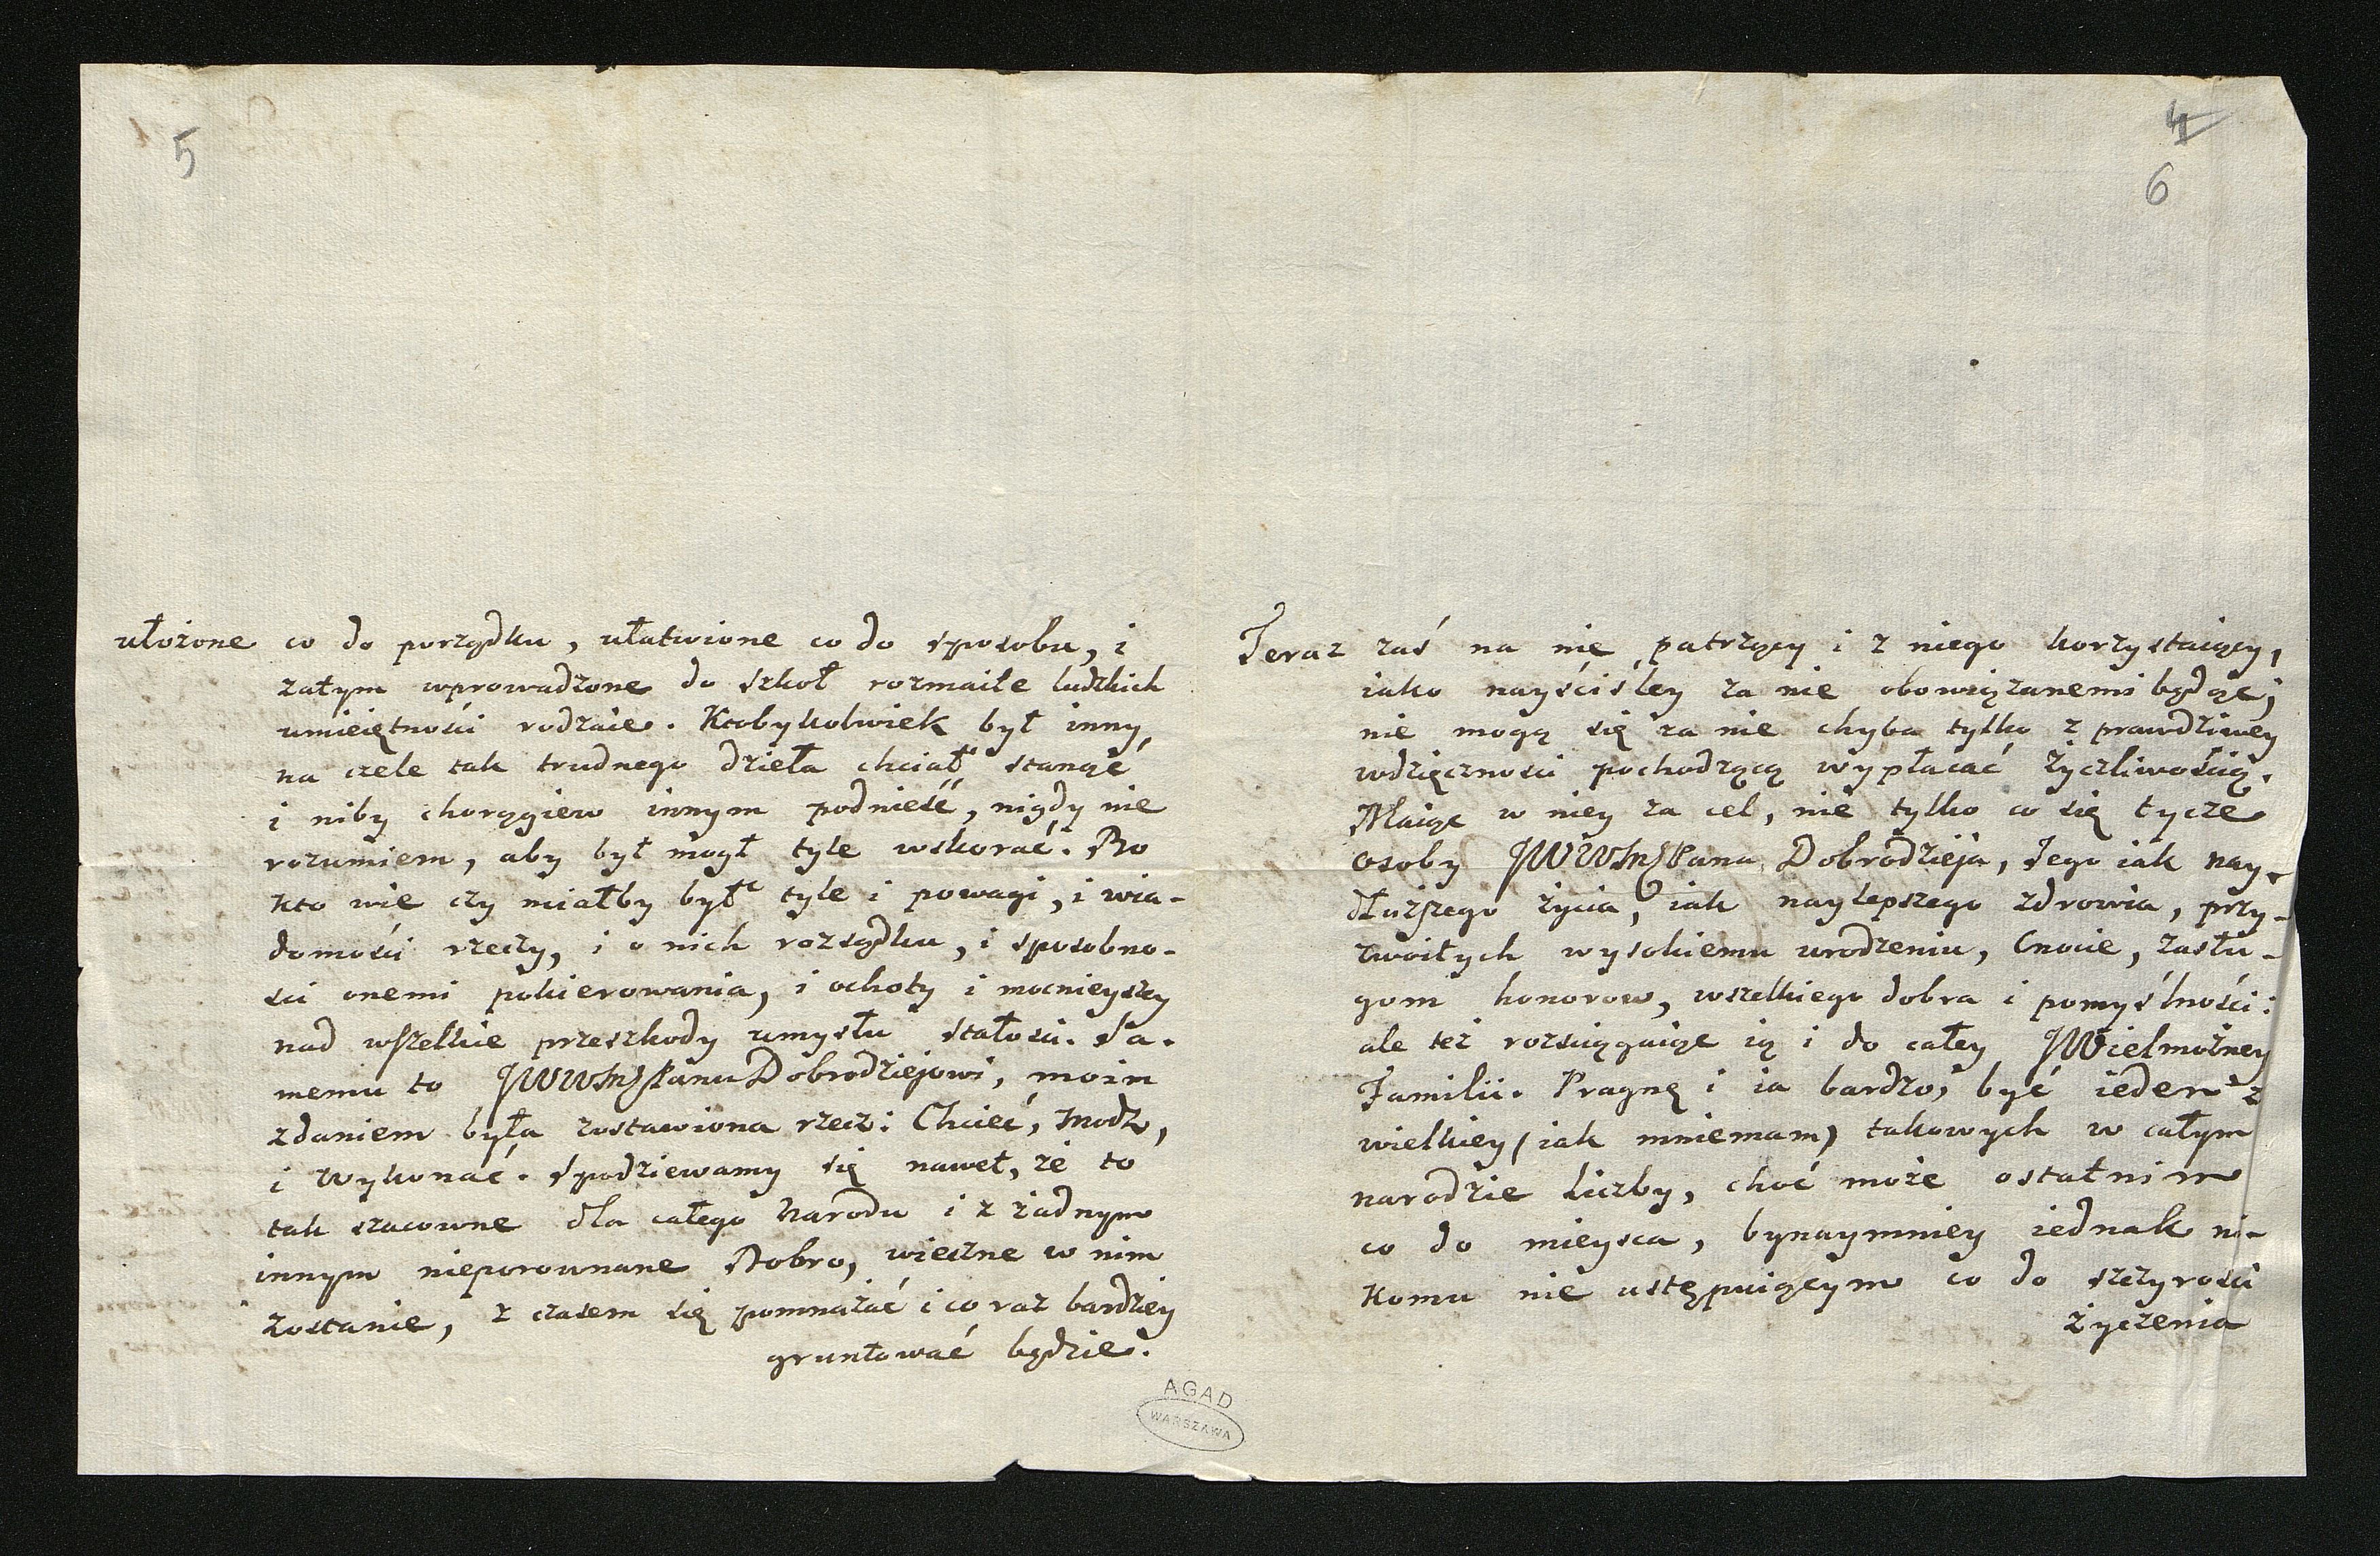 5
ułożone co do porządku, ułatwione co do sposobu, i
zatym wprowadzone do szkoł rozmaite ludzkich
umieiętności rodzaie. Ktobykolwiek był inny
na czele tak trudnego dzieła chciał stanąć
i niby chorągiew innym podnieść, nigdy nie
rozumiem, aby był mogł tyle wskorać. Bo
kto wie czy miałby był tyle i powagi, i wia-
domości rzeczy, i o nich rozsądku, i sposobno-
ści onemi pokierowania, i ochoty i mocnieyszey
nad wszelkie przeszkody umysłu stałości. Sa-
memu to JWWMPanu Dobrodziejowi, moim
zdaniem była zostawiona rzecz: Chcieć, modz,
i wykonać. Spodziewamy się nawet, że to
tak szacowne dla całego Narodu i z żadnym
innym nieporownane Dobro, wieczne w nim
zostanie, z czasem się pomnażać i co raz bardziey
gruntować będzie.
AGAD
WARSZAWA
4
6
Teraz zaś na nie patrzący i z niego korzystaiący,
iako nayściśley za nie obowiązanemi będąc;
nie mogą się za nie chyba tylko z prawdziwey
wdzięczności pochodzącą wypłacać życzliwością.
Maiąc w niey za cel, nie tylko co się tycze
osoby JWWMPana Dobrodzieja, Jego iak nay-
dłuższego życia, iak naylepszego zdrowia, przy-
zwoitych wysokiemu urodzeniu, Cnocie, zasłu-
gom honorow, wszelkiego dobra i pomyślności:
ale też rozciągaiąc ią i do całey JWielmożney
Familii. Pragnę i ia bardzo, być ieden z
wielkiey (iak mniemam) takowych w całym
narodzie liczby, choć może ostatnim
co do mieysca, bynaymniey iednak ni-
komu nie ustępuiącym co do szczyrości
życzenia